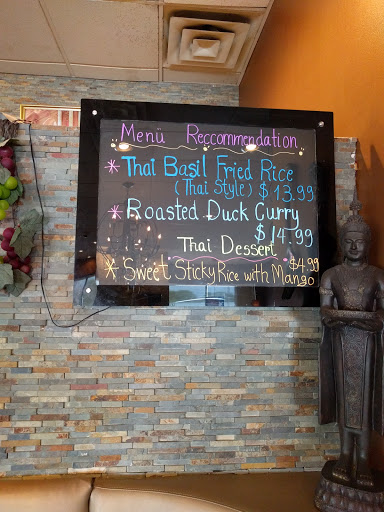 Menu Reccommendation
* Thai Basil Fried Rice
(Thai Style) $13.99
* Roasted Duck Curry
$14.99
Thai Dessert
* Sweet Sticky Rice with Mango $4.99